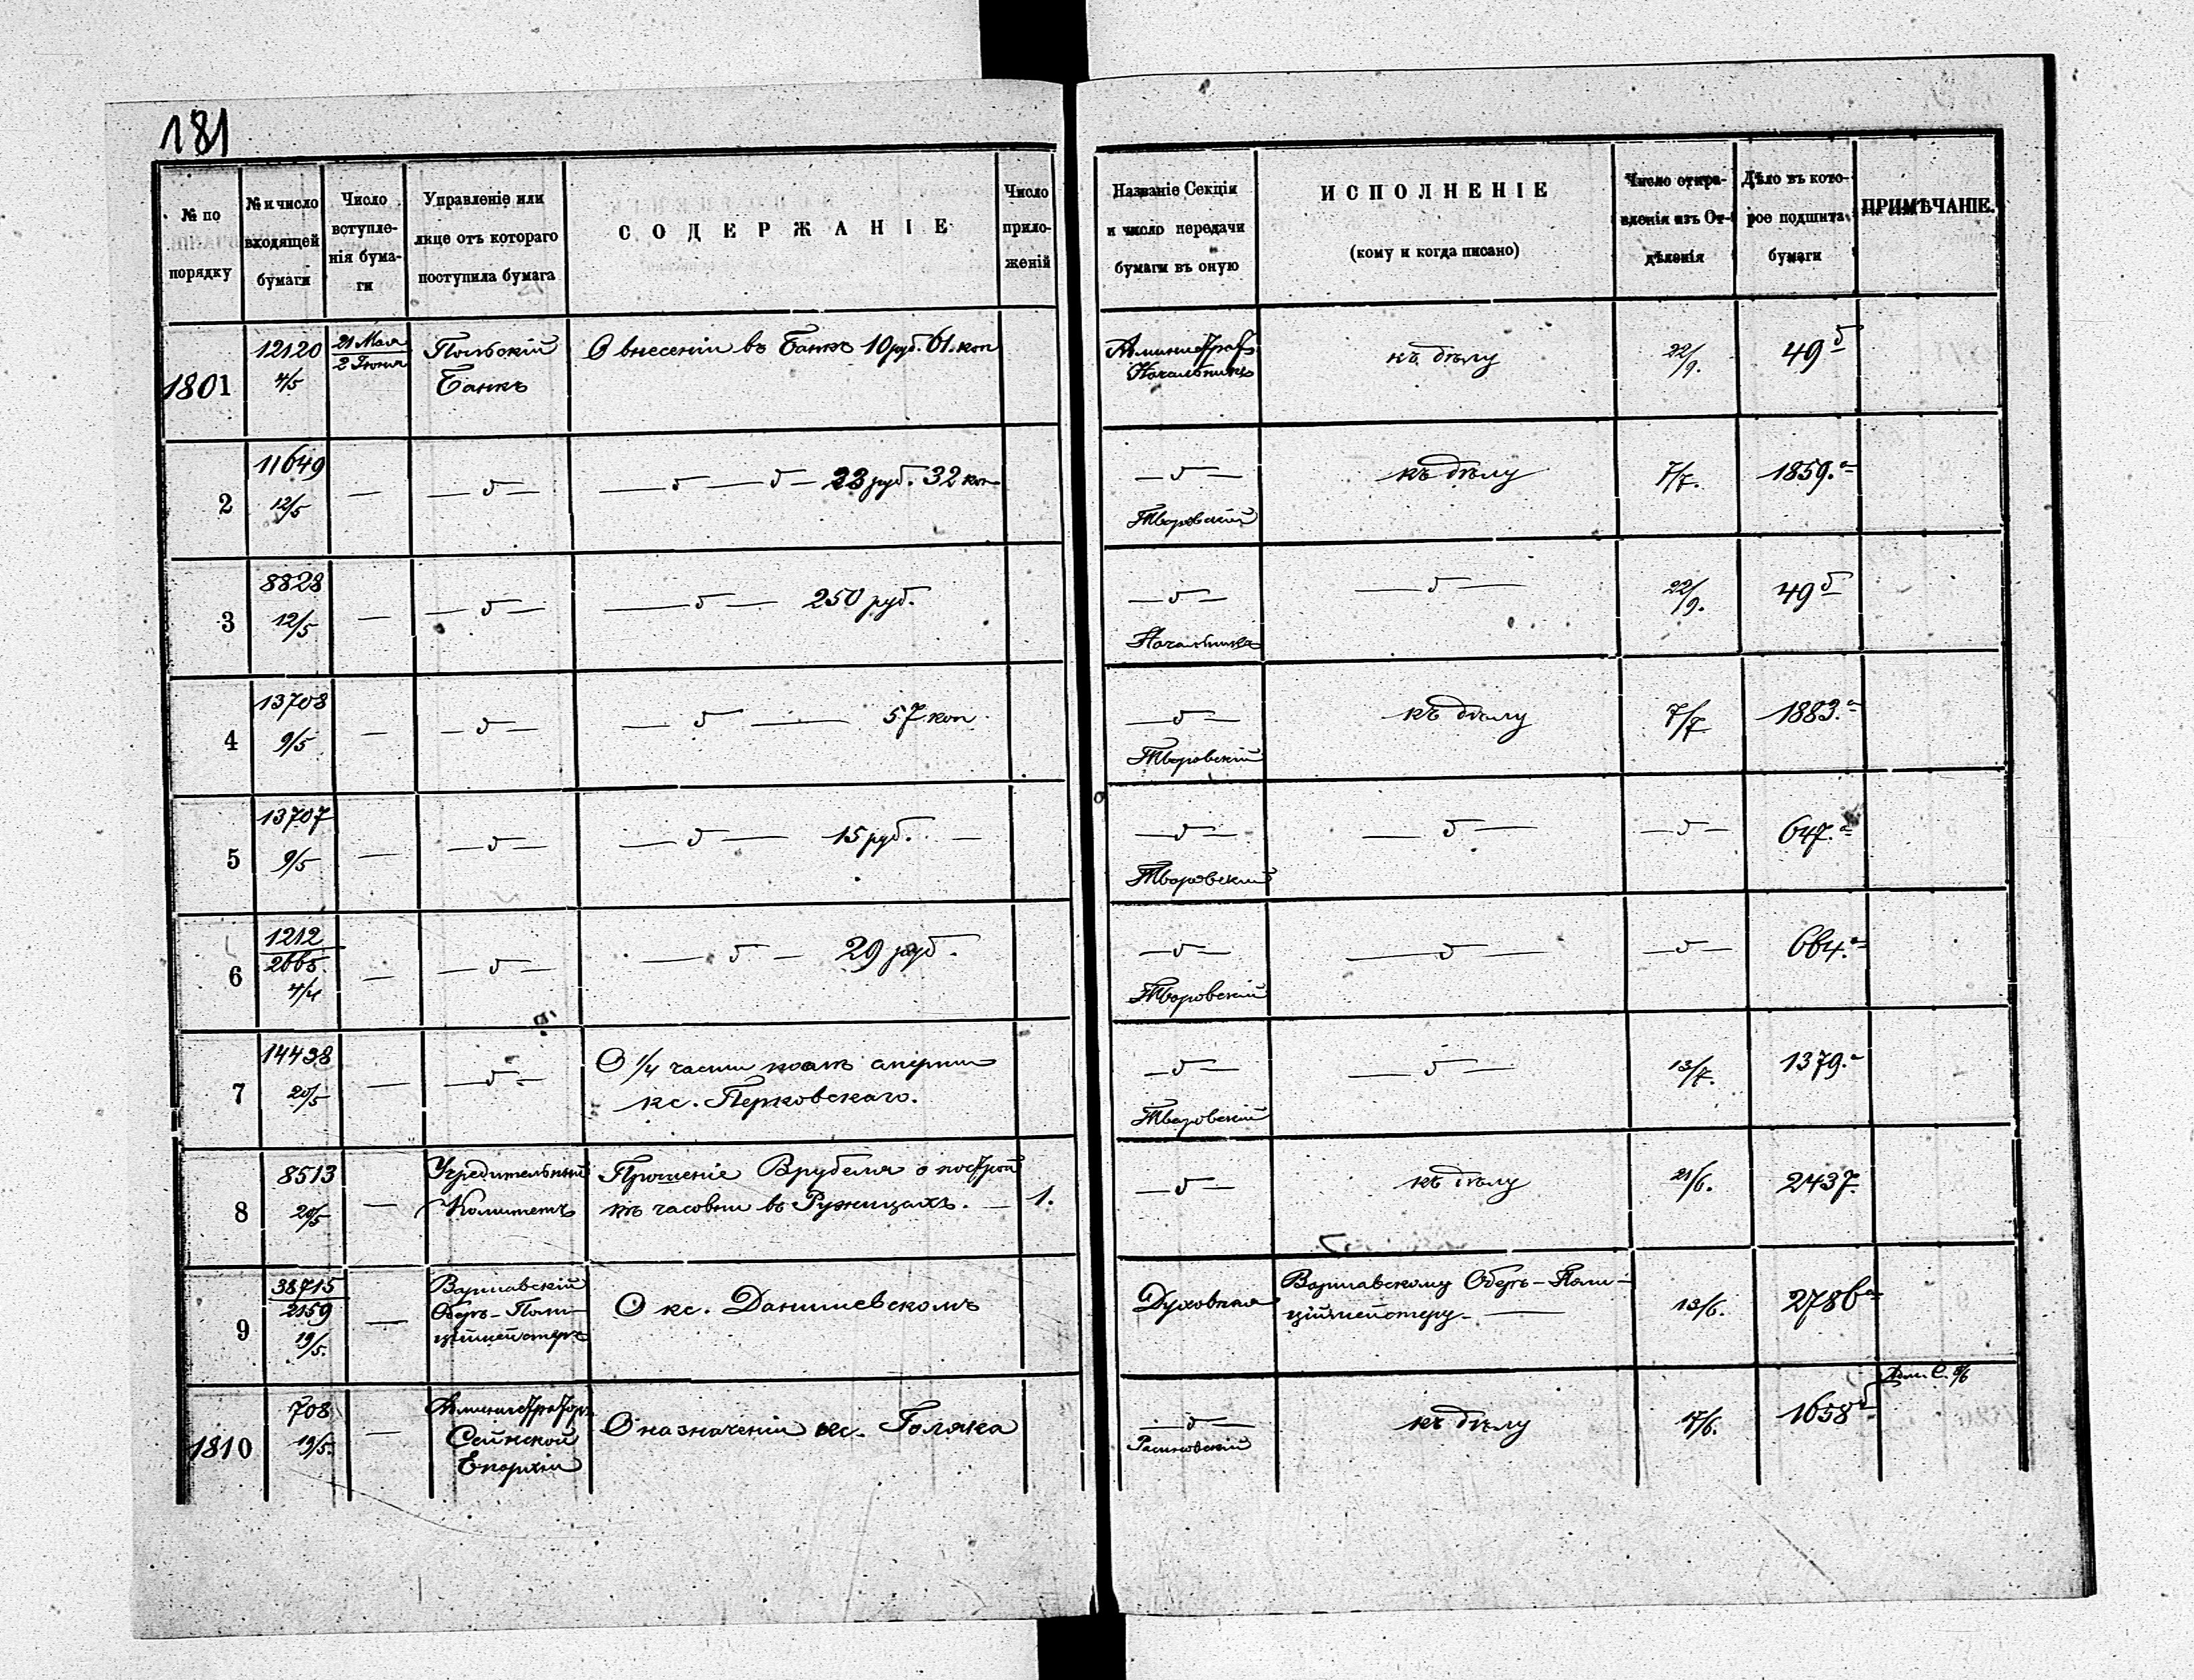 181
№ по порядку
№ и число входящей бумаги
Число вступленія бумаги
Управленіе или лице отъ котораго поступила бумага
СОДЕРЖАНІЕ
Число приложеній
Названіе Секціи и число передачи бумаги въ оную
ИСПОЛНЕНІЕ
(кому и когда писано)
Число отправленія изъ Отдѣленія
Дѣло въ которое подшита бумаги
ПРИМѢЧАНІЕ.
1801 12120 4/5 21 Мая 2 Іюня Польскій Банкъ О внесеніи въ Банкъ 10 руб. 61. коп къ дѣлу 22/9. 49 б
2 11649 12/5 — — б — — б — б — 23 руб. 32 коп — б — Творовскій къ дѣлу 7/7. 1859. а
3 8828 12/5 — — б — — б — 250 руб. — б — — б — 22/9. 49 б
4 13708 9/5 — — б — — б — 57 коп. — б — Творовскій къ дѣлу 7/7 1883. а
5 13707 9/5 — — б — — б — 15 руб. — — б — Творовскій — б — — б — 647. а
6 1212 2665 4/4 — — б — — б — 29 руб. — б — Творовскій — б — — б — 664. а
7 14438 20/5 — — б — О 1/4 части
кс. Перковскаго. — б — Творовскій — б — 13/7. 1379. а
8 8513 20/5 — Учредительный Комитетъ Прошеніе Врубеля о построй
кѣ часовни въ Ружицахъ. — 1. — б — къ дѣлу 21/6. 2437.
9 38715 2159 19/5. — Варшавскій Оберъ-Поли-
ційместеръ О кс. Данишевскомъ Духовная Варшавскому Оберъ-Поли-
ційместеру. — 13/6. 2786 а
1810 708 19/5. — Администраторъ Сейнской Епархіи О назначеніи кс. Голяка — б — къ дѣлу 17/6. 1658